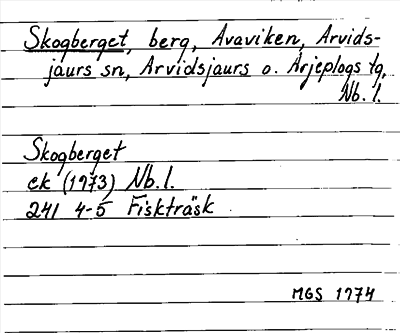 Skogberget, berg, Avaviken, Arvids-
jaurs sn, Arvidsjaurs o. Arjeplogs tg,
Nb. l.
Skogberget
ek (1973) Nb. l.
241 4-5 Fiskträsk
MGS 1974